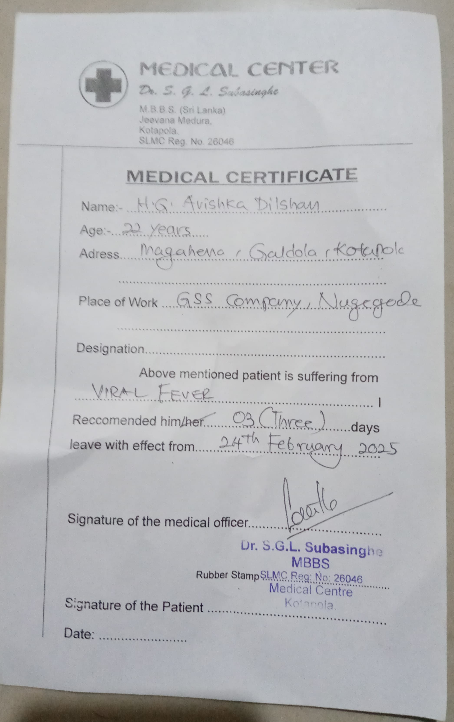 MEDICAL CENTER
Dr. S. G. L. Subasinghe
M.B.B.S. (Sri Lanka)
Jeevana Medura,
Kotapola.
SLMC Reg. No. 26046
MEDICAL CERTIFICATE
Name:- H.G. Avishka Dilshan
Age:- 22 years
Adress Magahena, Galdola, Kotapola
Place of Work GSS Company, Nugegode
Designation
Above mentioned patient is suffering from
VIRAL FEVER I
Reccomended him/her 03 (Three) days
leave with effect from 24th February 2025
Signature of the medical officer
Dr. S.G.L. Subasinghe
MBBS
Rubber Stamp SLMC.Reg: No: 26046
Medical Centre
Kotapola.
Signature of the Patient
Date: